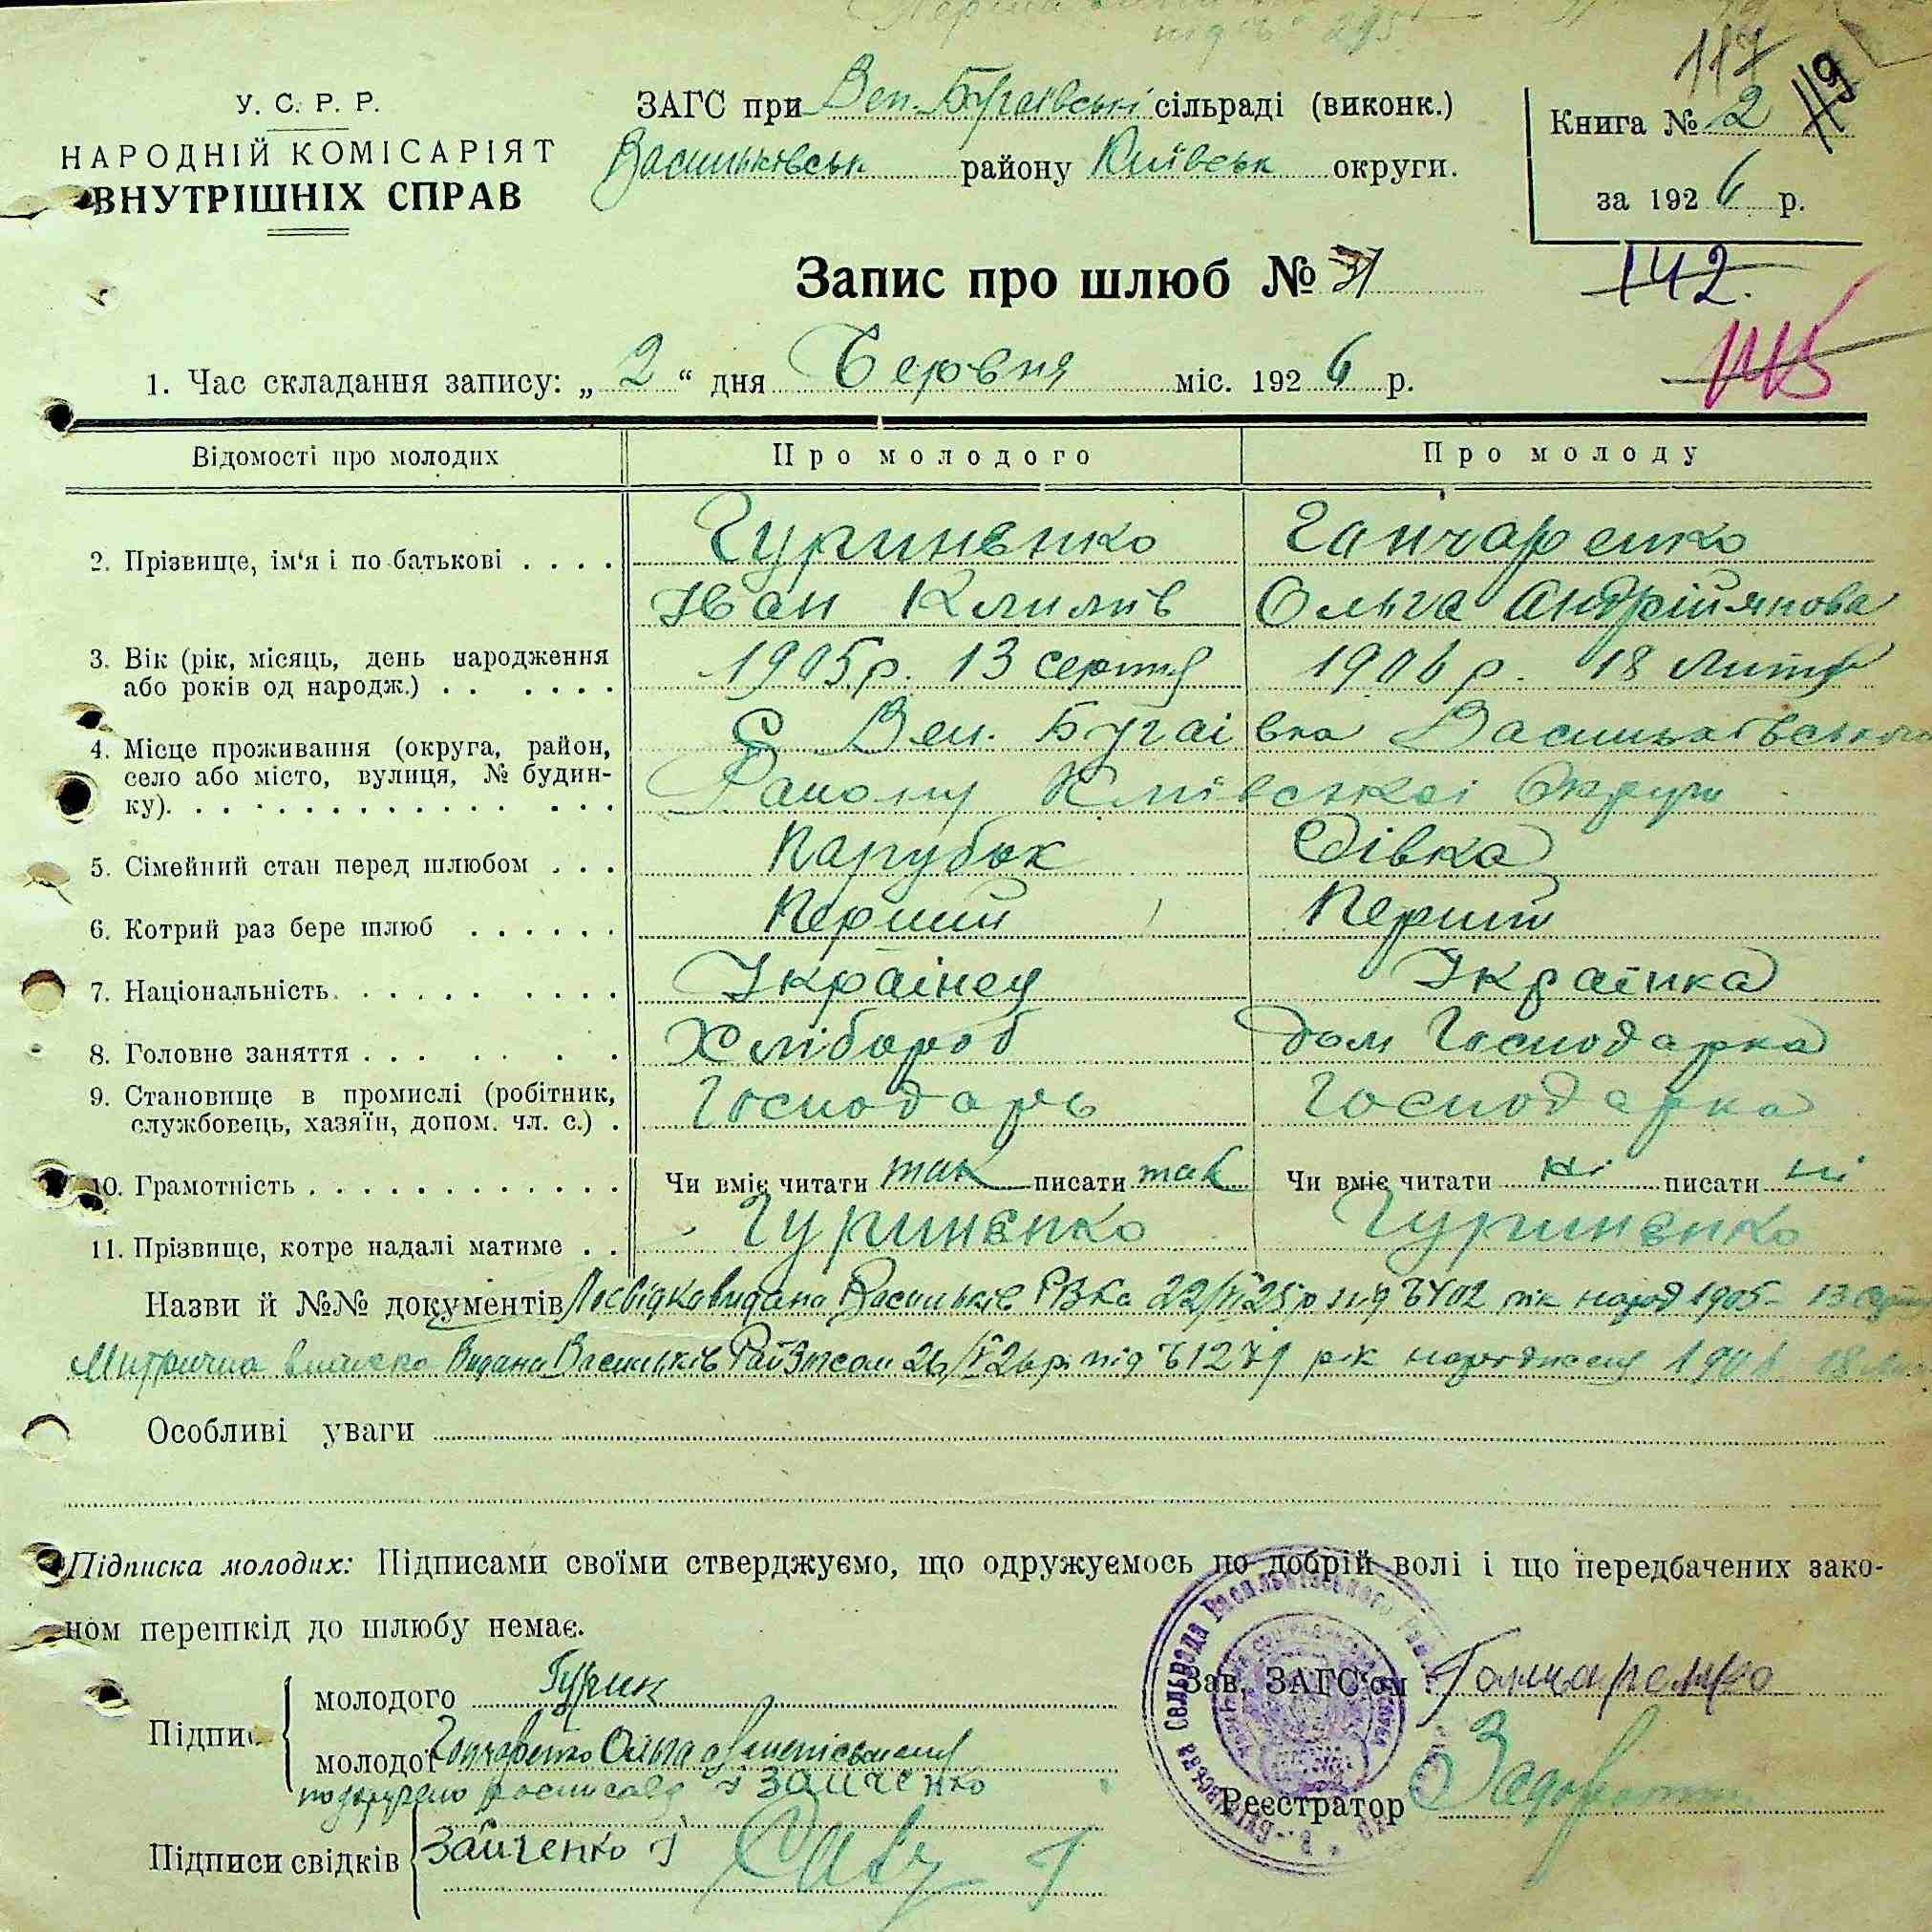 У. С. Р. Р.
НАРОДНІЙ КОМІСАРІЯТ
ВНУТРІШНІХ СПРАВ
ЗАГС при Вел. Бугаївські сільраді (виконк.)
Васильківськ району Київськ округи.
117 119
Книга № 2
за 1926 р.
Запис про шлюб № 31
142.
145
1. Час складання запису: „ 2 “ дня Червня міс. 1926 р.
Відомості про молодих Про молодого Про молоду
2. Прізвище, ім‘я і по батькові . . . . Гуриненко Ганчаренко
Іван Климів Ольга Андріймнова
3. Вік (рік, місяць, день народження 1905 р. 13 серпня 1906 р. 18 Лютя
або років од народж.) . . . . . .
4. Місце проживання (округа, район, С Вел. Бугаівка Васильківського
село або місто, вулиця, № будин- Району Київскоі Округи
ку).
5. Сімейний стан перед шлюбом . . . Парубок Дівка
6. Котрий раз бере шлюб . . . . . . Перший Перший
7. Національність. Украінец Украінка
8. Головне заняття . . . Хлібороб дом Господарка
9. Становище в промислі (робітник, Господарь Господарка
службовець, хазяїн, допом. чл. с.) .
10. Грамотність Чи вміє читати так писати так Чи вміє читати ні писати ні
11. Прізвище, котре надалі матиме . . Гуриненко Гуриненко
Назви й №№ документів Посвідка видана Васильків РВКа 22/VI 25 р 6402 рік народ 1905 - 13
Митрична виписка Видана Васильків РайЗагсом 26/V 26 р. під 1279 рік народження 1906 18
Особливі уваги
Підписка молодих: Підписами своїми стверджуємо, що одружуємось по добрій волі і що передбачених зако-
ном перешкід до шлюбу немає.
Підпис молодого Гурин
молодої Гончаренко Ольга
росписався Зайченко
Підписи свідків Зайченко
Зав. ЗАГС‘ом Гончаренко
Реєстратор